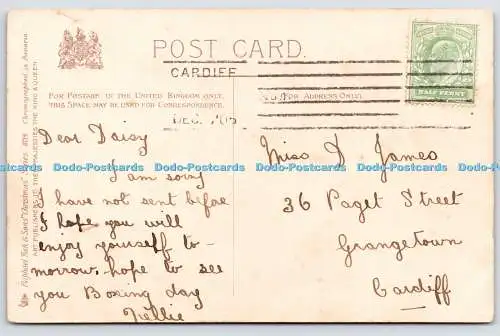 POST CARD.
CARDIFF
FOR POSTAGE IN THE UNITED KINGDOM ONLY,
THIS SPACE MAY BE USED FOR CORRESPONDENCE.
(FOR ADDRESS ONLY.)
HALF PENNY
DEC.
Raphael Tuck & Sons' "Christmas" Series
Chromographed in Bavaria
ART PUBLISHERS TO THEIR MAJESTIES THE KING & QUEEN
Dear Daisy
I am sorry
I have not sent bifore
I hope you will
enjoy yourself to-
morrow. hope to see
you Boxing day
Nellie
Miss D James
36 Paget Street
Grangetown
Cardiff
Dodo-Postcards Dodo-Postcards Dodo-Postcards Dodo-Postcards Dodo-Postcards